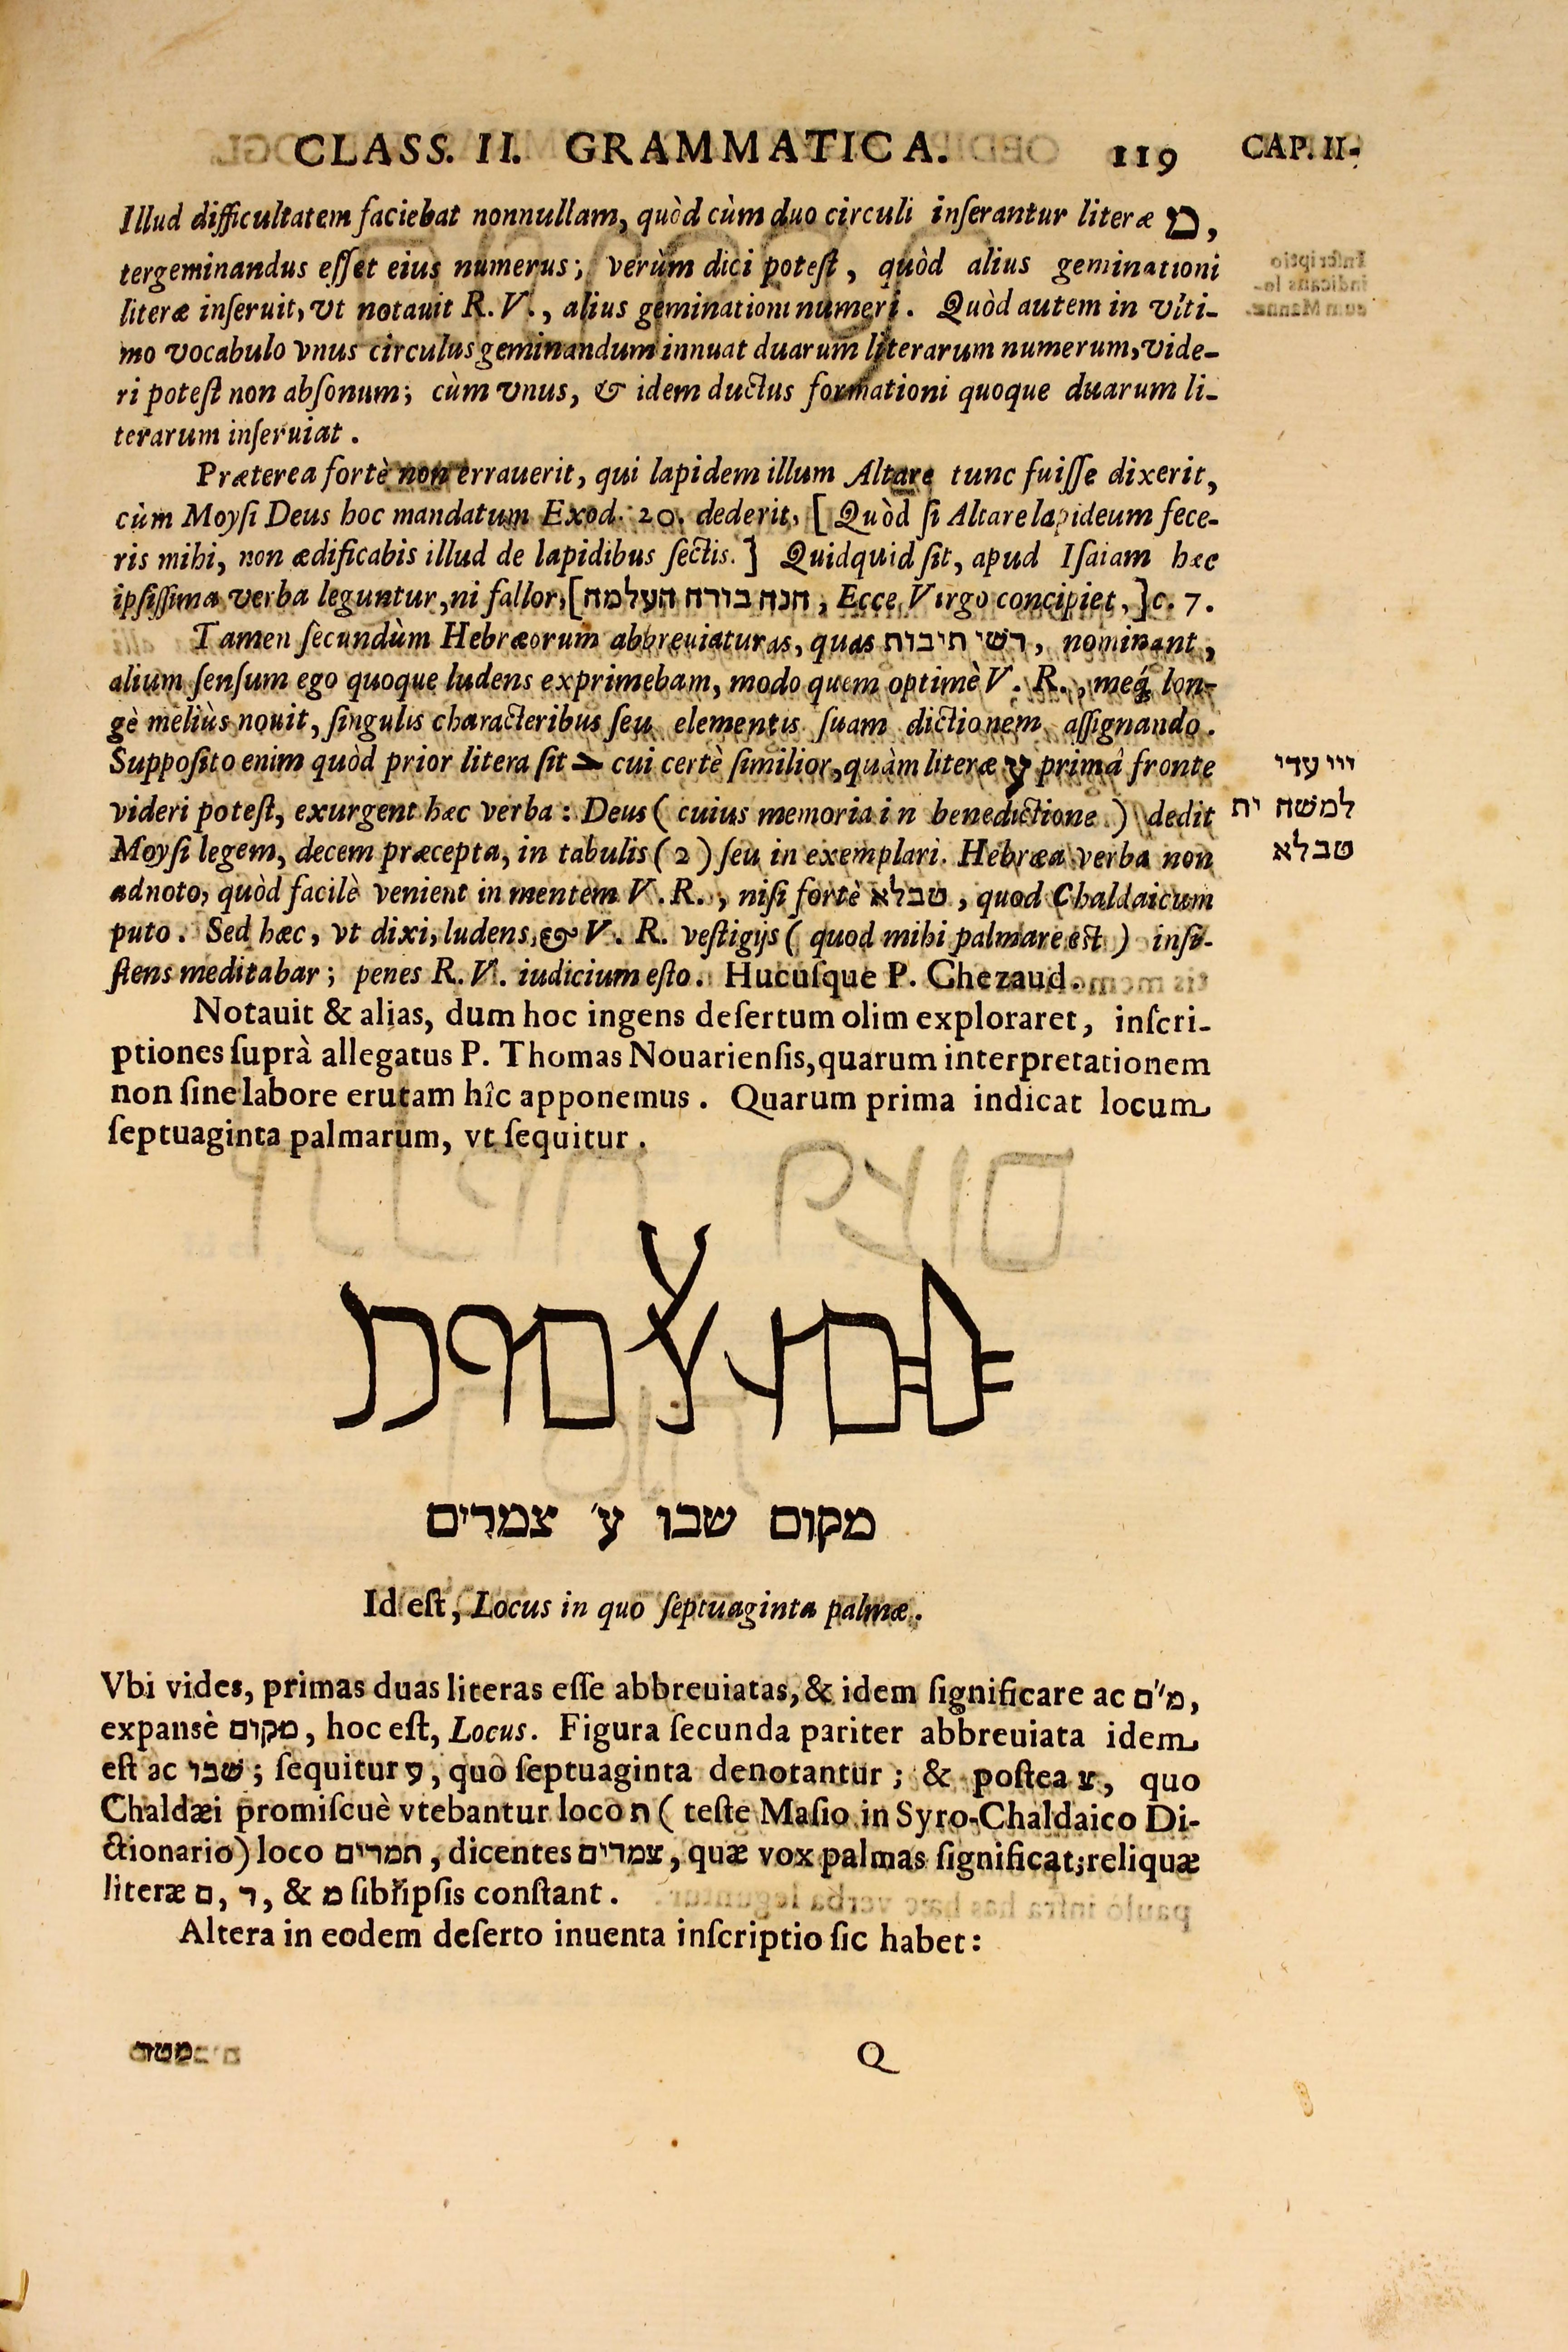 CLASS. II. GRAMMATICA. 119 CAP. II.
Illud difficultatem faciebat nonnullam, quòd cùm duo circuli inſerantur literæ מ,
tergeminandus eſſet eius numerus; verùm dici poteſt, quòd alius geminationi
literæ inſeruit, vt notauit R. V., alius geminationi numeri. Quòd autem in vlti-
mo vocabulo vnus circulus geminandum innuat duarum literarum numerum, vide-
ri poteſt non abſonum; cùm vnus, & idem ductus formationi quoque duarum li-
terarum inſeruiat.
Præterea fortè non errauerit, qui lapidem illum Altare tunc fuiſſe dixerit,
cùm Moyſi Deus hoc mandatum Exod. 20. dederit, [Quòd ſi Altare lapideum fece-
ris mihi, non ædificabis illud de lapidibus ſectis.] Quidquid ſit, apud Iſaiam hæc
ipſiſſima verba leguntur, ni fallor, [הנה בורה העלמה, Ecce Virgo concipiet,] c. 7.
Tamen ſecundùm Hebræorum abbreuiaturas, quas רשי תיבות, nominant,
alium ſenſum ego quoque ludens exprimebam, modo quem optimè V. R., meq́ lon-
gè meliùs nouit, ſingulis characteribus ſeu elementis ſuam dictionem aſſignando.
Suppoſito enim quòd prior litera ſit cui certè ſimilior, quàm literæ ע primâ fronte
videri poteſt, exurgent hæc verba: Deus (cuius memoria in benedictione.) dedit
Moyſi legem, decem præcepta, in tabulis (2) ſeu in exemplari. Hebræa verba non
adnoto, quòd facilè venient in mentem V. R., niſi fortè טבלא, quod Chaldaicum
puto. Sed hæc, vt dixi, ludens, & V. R. veſtigijs (quod mihi palmare eſt) inſi-
ſtens meditabar; penes R. V. iudicium eſto. Hucuſque P. Chezaud.
ייי עדי
למשה ית
טבלא
Notauit & alias, dum hoc ingens deſertum olim exploraret, inſcri-
ptiones ſuprà allegatus P. Thomas Nouarienſis, quarum interpretationem
non ſine labore erutam hîc apponemus. Quarum prima indicat locum
ſeptuaginta palmarum, vt ſequitur.
מקום שבו ע׳ צמרים
Id eſt, Locus in quo ſeptuaginta palmæ.
Vbi vides, primas duas literas eſſe abbreuiatas, & idem ſignificare ac מ״ם,
expansè מקום, hoc eſt, Locus. Figura ſecunda pariter abbreuiata idem
eſt ac שבו; ſequitur ע, quo ſeptuaginta denotantur; & poſtea צ, quo
Chaldæi promiſcuè vtebantur loco ת (teſte Maſio in Syro-Chaldaico Di-
ctionario) loco תמרים, dicentes צמרים, quæ vox palmas ſignificat; reliquæ
literæ ם, ר, & מ ſibi ipſis conſtant.
Altera in eodem deſerto inuenta inſcriptio ſic habet:
Q